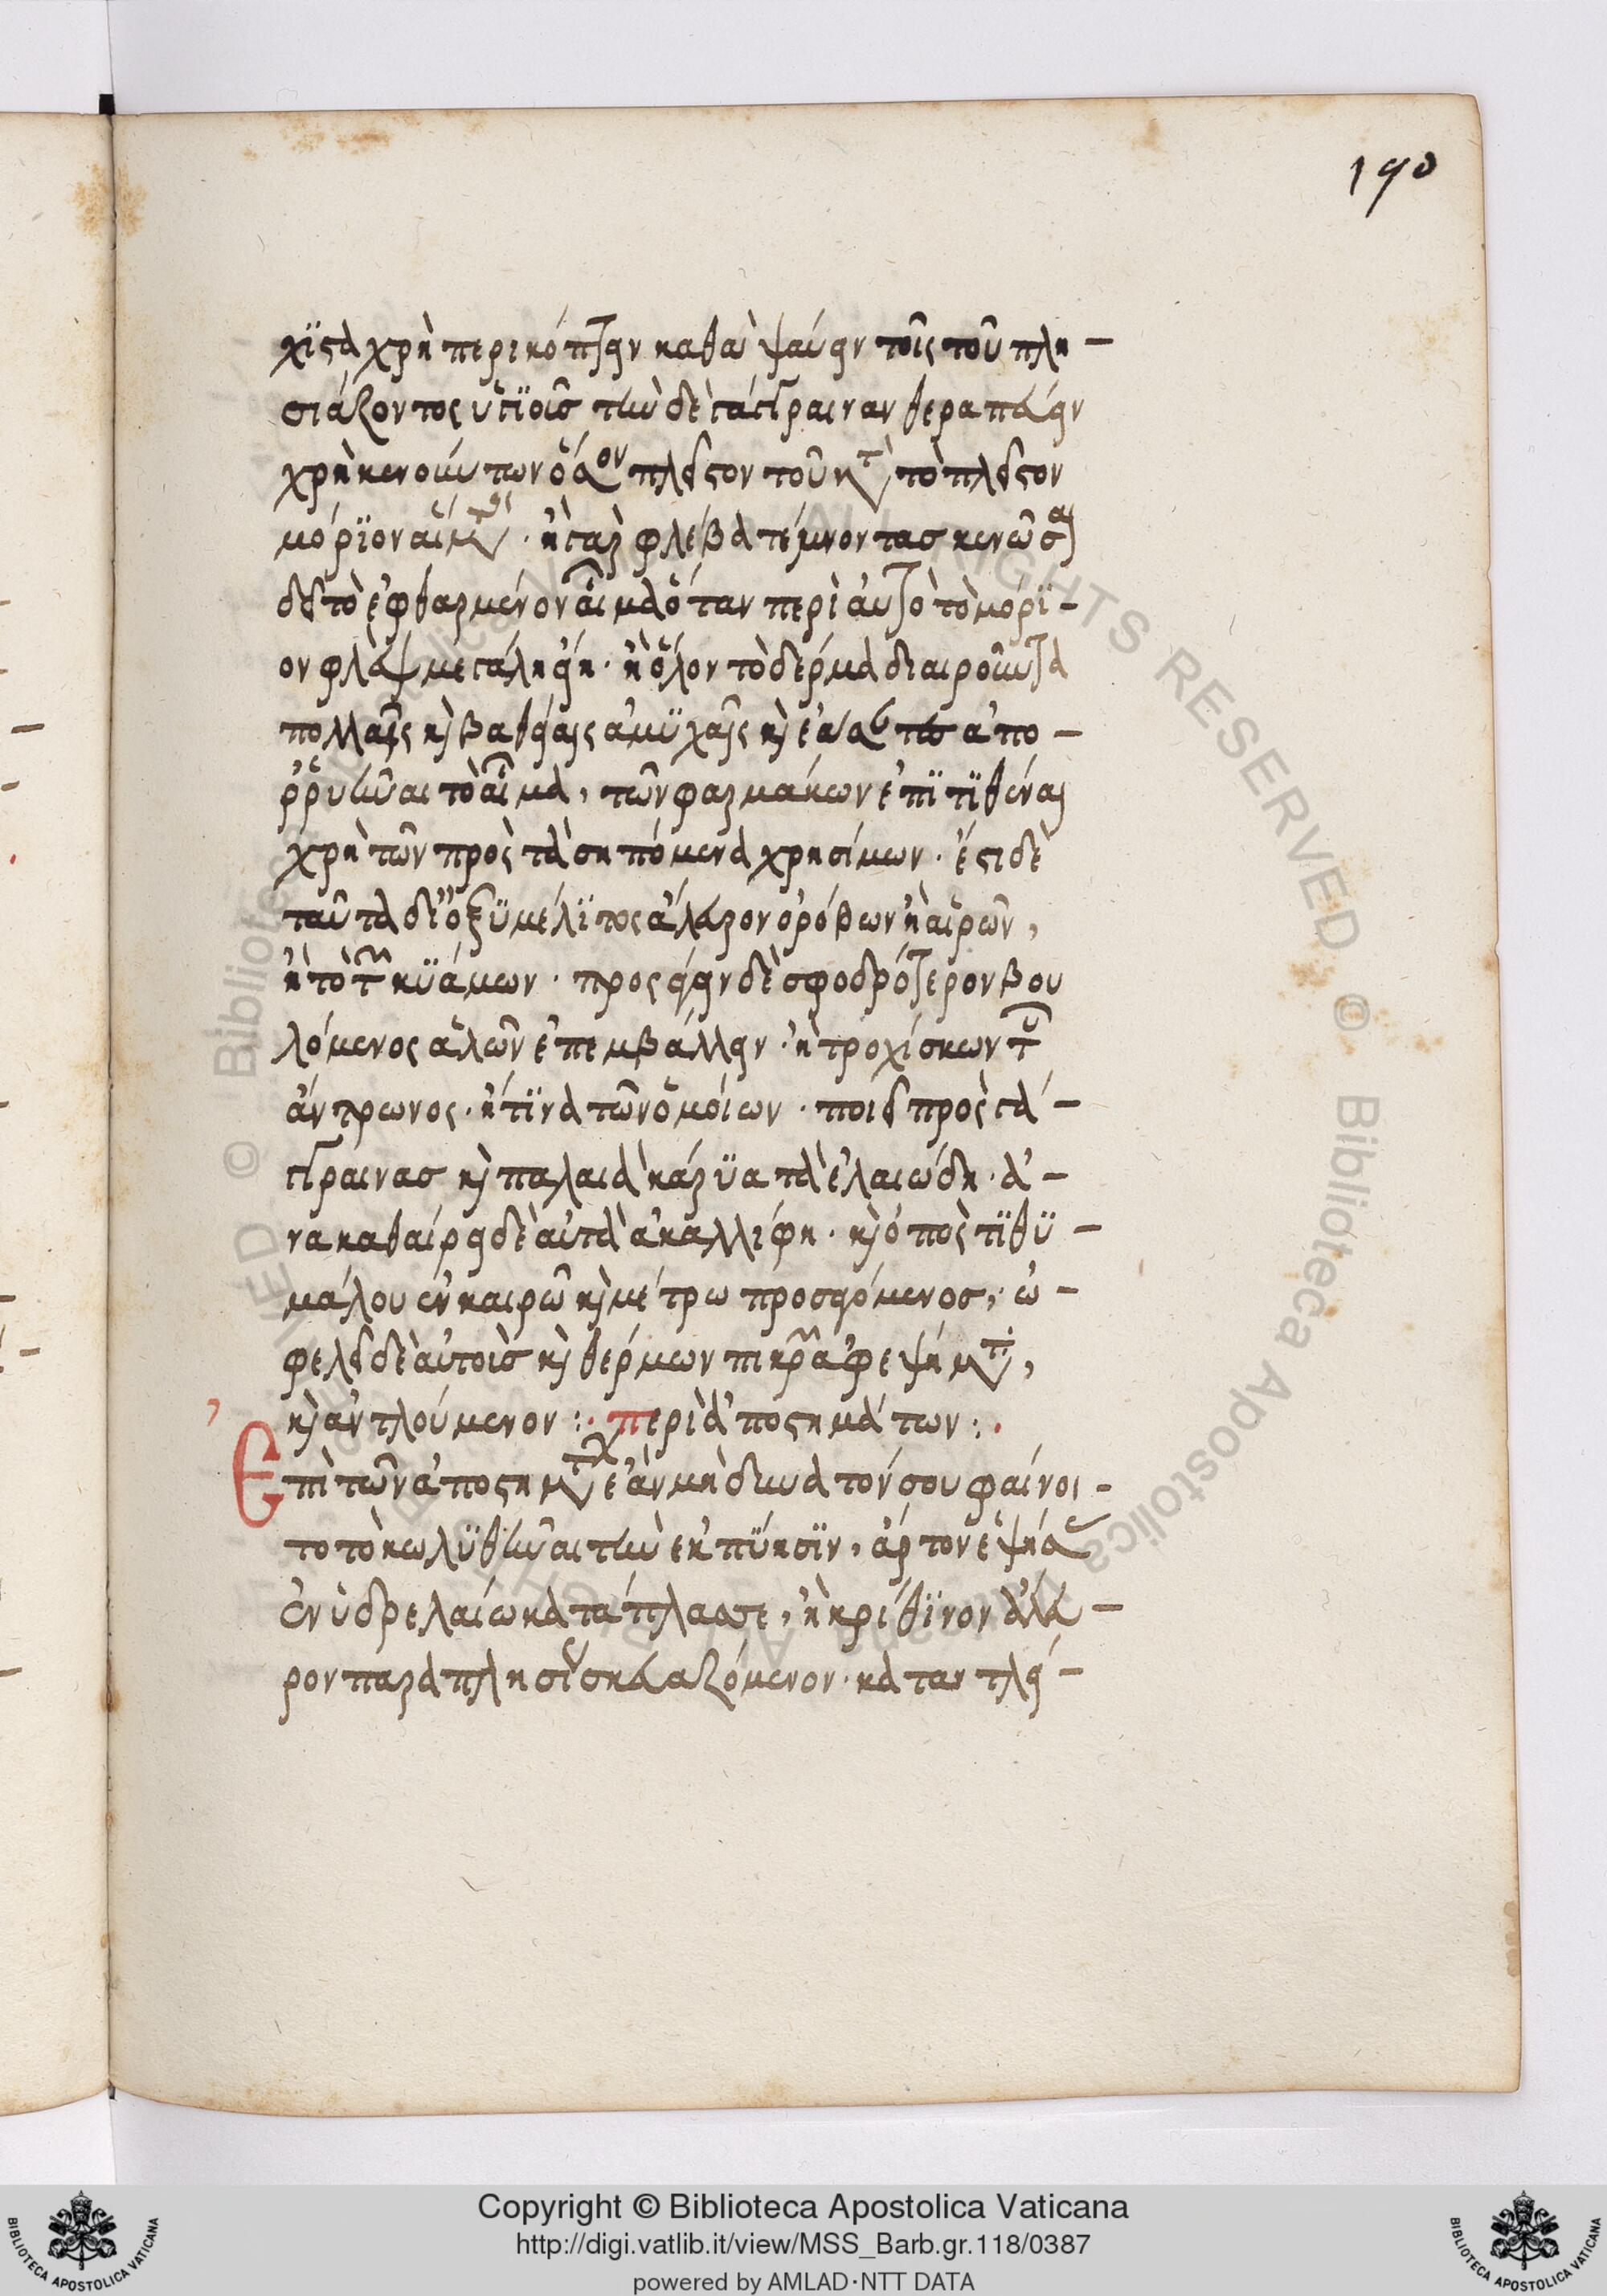 190
χϊστα χρὴ περικόπτειν καθὰ ψαύειν τοῖς τοῦ πλη-
σιάζοντος ὑγιοῦς τὴν δὲ γάγγραιναν θεραπεύειν
χρὴ κενοῦντων ὅσον πλεῖστον τοῦ κτ τὸ πλεῖστον
μόριον αἵματος. ἢ γὰρ φλέβα τέμνοντας κενῶσαι
δεῖ τὸ ἐφθαρμένον αἷμα ὅταν περὶ αὐτὸ τὸ μόρϊ-
ον φλὲψ μεγάλη εἴη. ἢ ὅλον τὸ δέρμα διαιροῦντα
πολλαῖς κὶ βαθείαις ἀμϋχαῖς κὶ ἐάσαντα ἀπο-
ῤῥυῆναι τὸ αἷμα, τῶν φαρμάκων ἐπϊτϊθέναι
χρὴ τῶν πρὸς τὰ σηπόμενα χρησίμων. ἔστι δὲ
ταῦτα δι' ὀξϋμέλϊτος ἄλευρον ὀρόβων ἢ αἰρῶν,
ἢ τὸ τῶν κϋάμων. προσῄειν δὲ σφοδρότερον βου
λόμενος ἁλῶν ἐπεμβάλλειν. ἢ τροχίσκων τοῦ
ἄνδρωνος. ἤ τϊνα τῶν ὁμοίων. ποιεῖ πρὸς γα-
γγραινας κὶ παλαιὰ κάρϋα τὰ ἐλαιώδη. ἀ-
νακαθαίρει δὲ αὐτὰ ἀκαλλίφη. κὶ ὀπὸς τϊθϋ-
μάλου ἐν καιρῶ κὶ μέτρω προσφερόμενος, ὠ-
φελεῖ δὲ αὐτοῖς κὶ θέρμων πικρῶν ἀφεψήματι,
κὶ ἀντλούμενον :. περὶ ἀποστημάτων :.
Ἐπὶ τῶν ἀποστημάτων ἐὰν μὴ δυνατόν σου φαίνοι-
το τὸ κωλϋθῆναι τὴν ἐκπΰησϊν, ἄρτον ἑψήσας
ἐν ὑδρελαίω κατάπλασσε, ἢ κρίθϊνον ἄλευ-
ρον παραπλησίως σκευαζόμενον. καταντλεῖ-
Copyright © Biblioteca Apostolica Vaticana
http://digi.vatlib.it/view/MSS_Barb.gr.118/0387
powered by AMLAD·NTT DATA
BIBLIOTECA APOSTOLICA VATICANA
BIBLIOTECA APOSTOLICA VATICANA